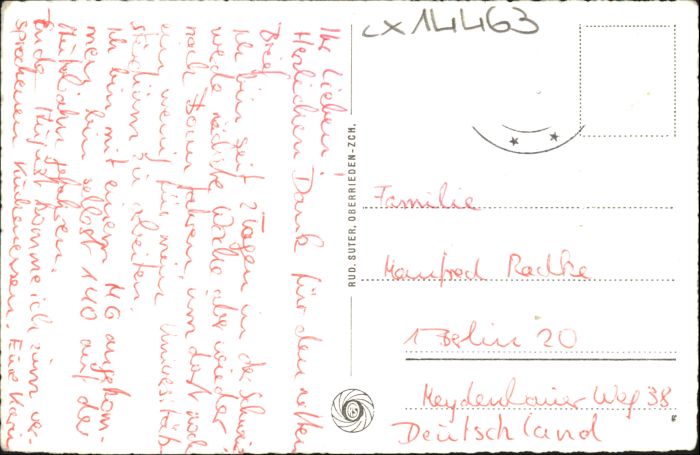 cx 14463
Ihr Lieben,
Herzlichen Dank für den netten
Brief.
Ich bin seit 2 Tagen in der Schweiz
werde nächste Woche aber wieder
nach Bonn fahren, um dort noch
ein wenig für mein Universitäts-
studium zu arbeiten.
Ich bin mit einem MG angekom-
men, bin selbst 140 auf der
Autobahn gefahren.
Ende August komme ich zum ver-
sprochenen Kuchenessen. Eure
RUD. SUTER, OBERRIEDEN-ZCH.
Familie
Manfred Radtke
1 Berlin 20
Weg 38
Deutschland